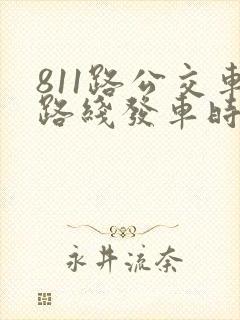 811路公交車
路綫發車時
永井流奈